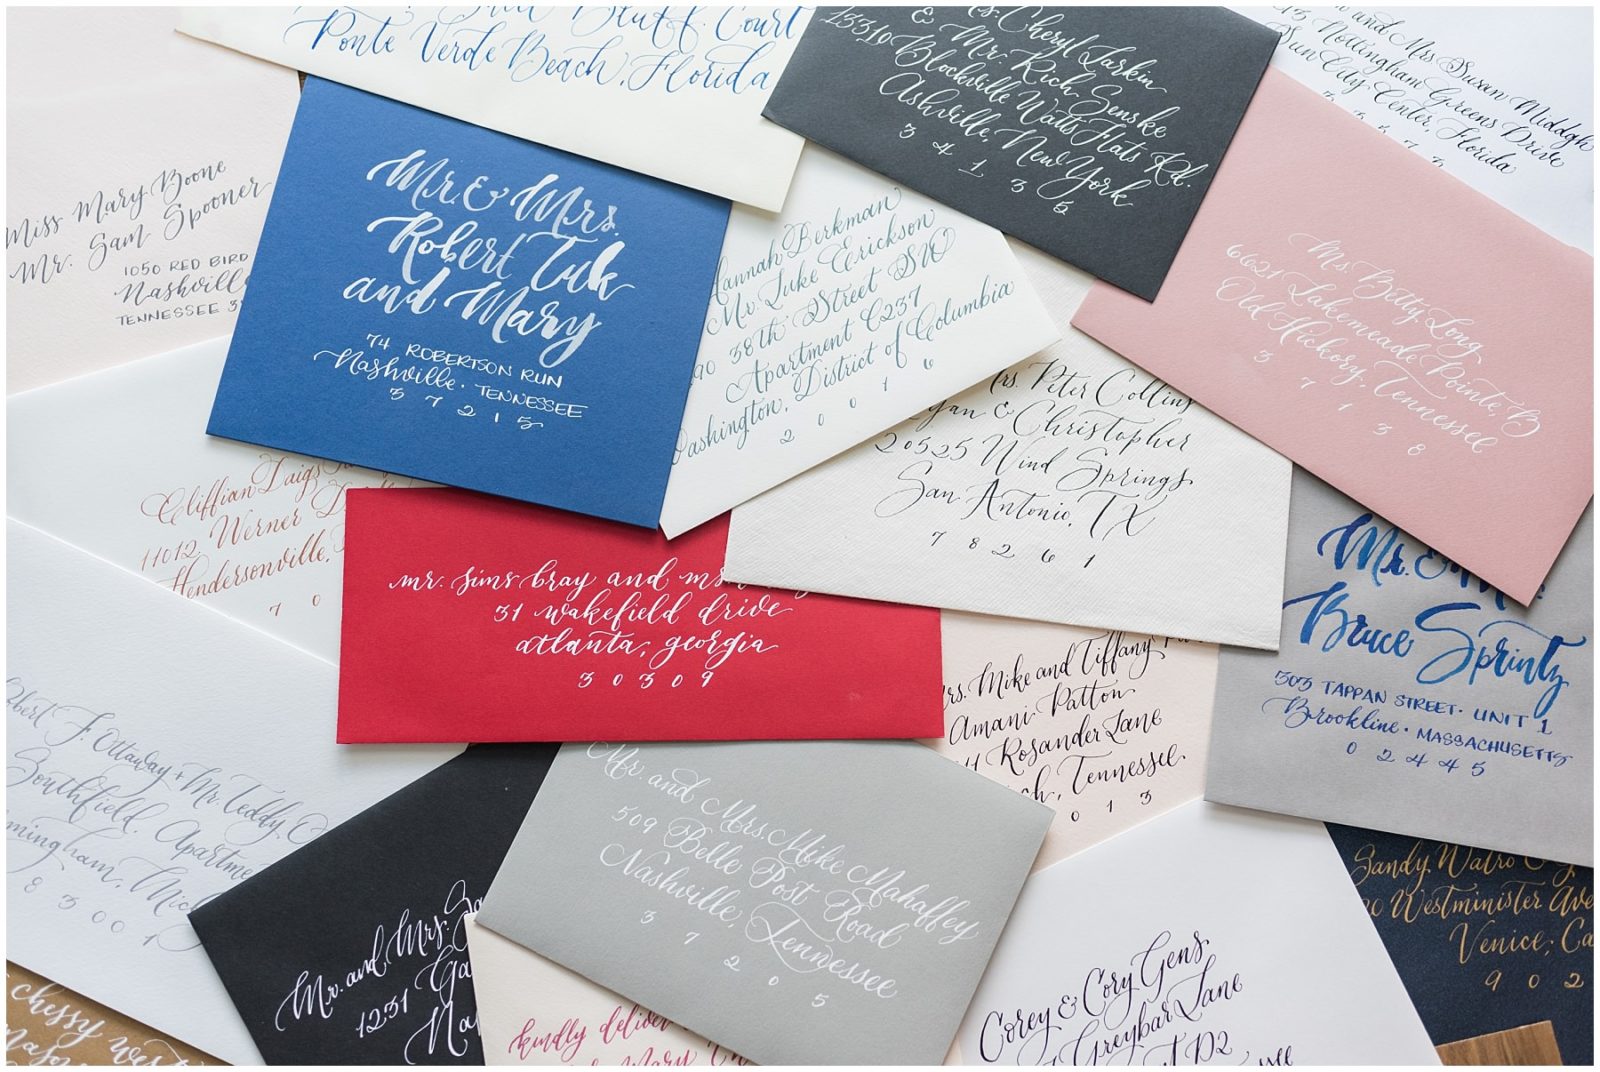 Bluff Court
Ponte Verde Beach, Florida
Cheryl Larkin
& Mr. Rich Senske
13310 Blockville Watts Flats Rd.
Ashville, New York
3 4 1 3 5
and Mrs Susan Middgh
Nottingham Greens Drive
Sun City Center, Florida
Miss Mary Boone
Mr. Sam Spooner
1050 RED BIRD
Nashville
TENNESSEE
Mr. & Mrs.
Robert Tuck
and Mary
74 ROBERTSON RUN
Nashville · TENNESSEE
3 7 2 1 5
Hannah Berkman
Mr. Luke Erickson
38th Street SW
Apartment C237
Washington, District of Columbia
2 0 0 1 6
Ms Betty Long
6621 Lakemeade Pointe, B
Old Hickory, Tennessee
3 7 1 3 8
Mrs. Peter Collins
& Christopher
20525 Wind Springs
San Antonio, TX
7 8 2 6 1
11012 Werner
Hendersonville,
7 0
mr. sims bray and
31 wakefield drive
atlanta, georgia
3 0 3 0 9
Mr. &
Bruce Sprintz
303 TAPPAN STREET · UNIT 1
Brookline · MASSACHUSETTS
0 2 4 4 5
Mrs. Mike and Tiffany
Amani Patton
Rosander Lane
Tennessee
0 1 3
F. Ottaway + Mr. Teddy
Southfield, Apartme
mingham, Mic
8 3 0 0 1
Mr. and Mrs.
1231
Mr and Mrs Mike Mahaffey
509 Belle Post Road
Nashville, Tennessee
3 7 2 0 5
Sandy Watro &
Westminister Ave
Venice, Ca
9 0 2
kindly deliver
Mary
Corey & Cory Gens
Greybar Lane
D2
chessy west